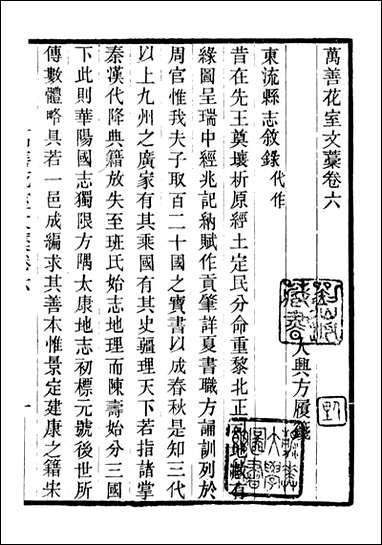 萬善花室文藁卷六
大興方履籛
東流縣志敘錄代作
昔在先王奠壤析原經土定民分命重黎北正
地藏有
緣圖呈瑞中經兆記納賦作貢肇詳夏書職方誦訓列於
周官惟我夫子取百二十國之寶書以成春秋是知三代
以上九州之廣家有其乘國有其史疆理天下若指諸掌
秦漢代降典籍放失至班氏始志地理而陳壽始分三國
下此則華陽國志獨限方隅太康地志初標元號後世所
傳數體略具若一邑成編求其善本惟景定建康之籍宋
萬善花室文藁卷六
一